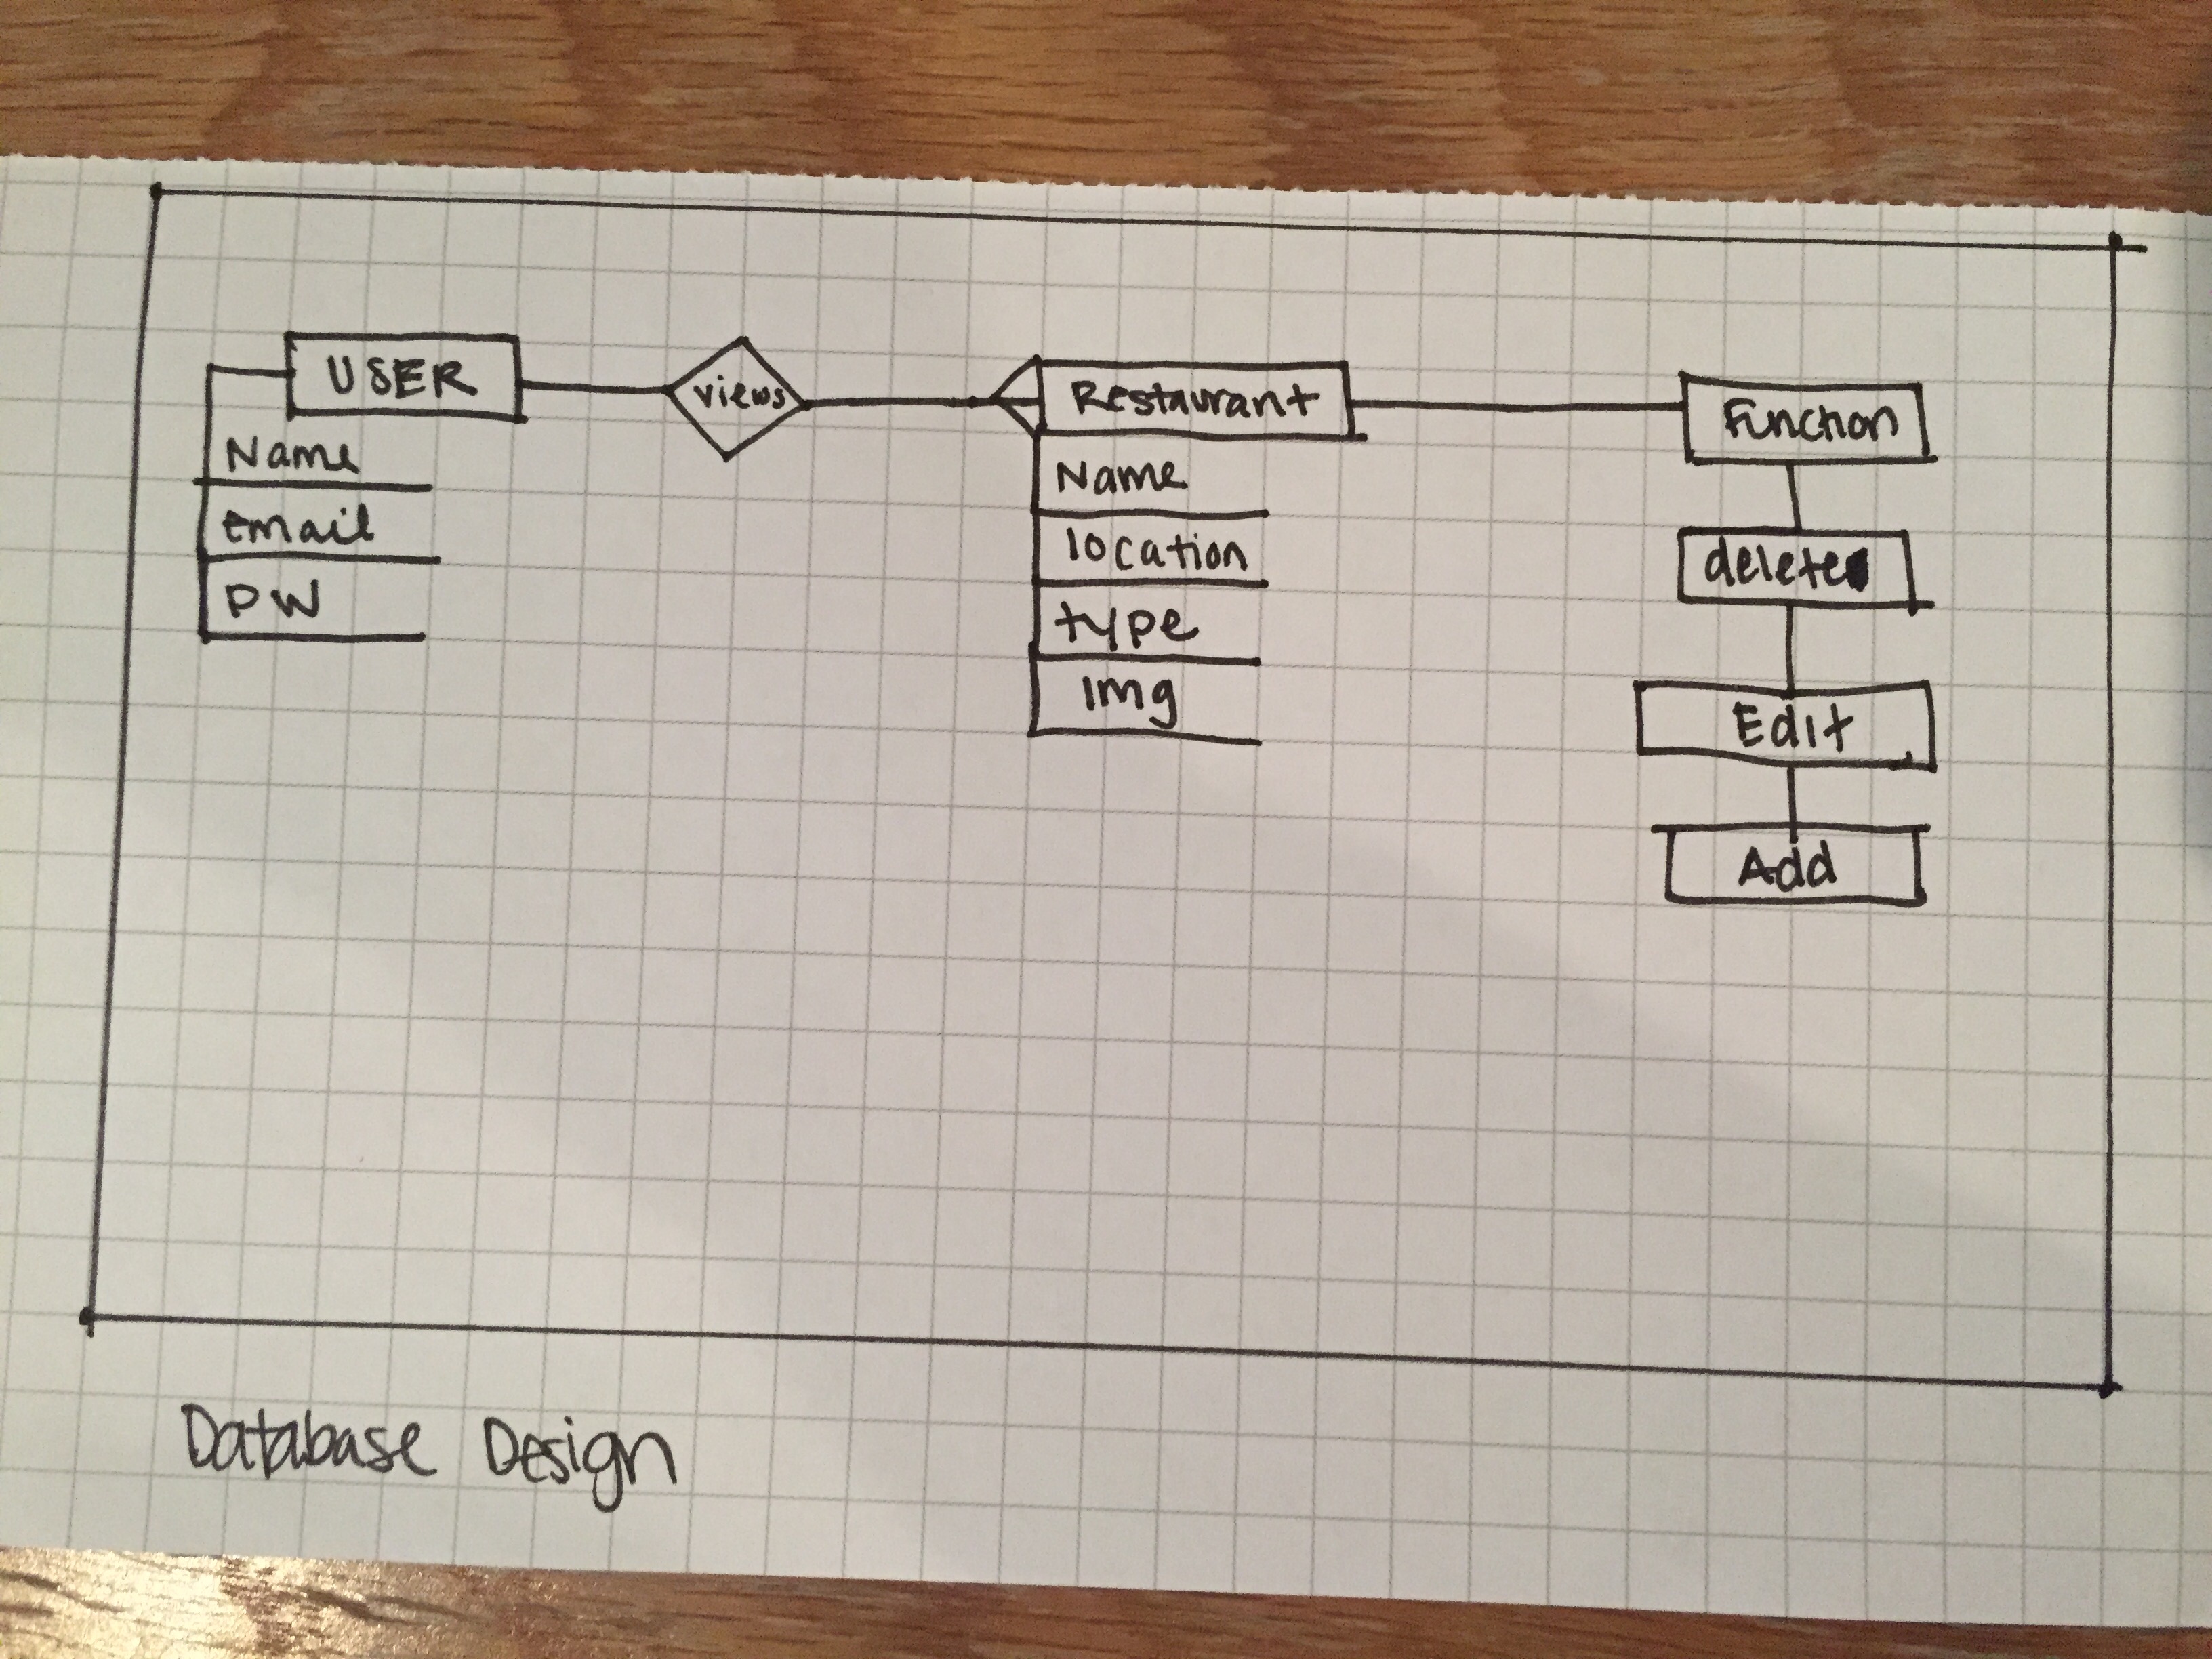 USER
Name
email
PW
views
Restaurant
Name
location
type
Img
Function
delete
Edit
Add
Database Design